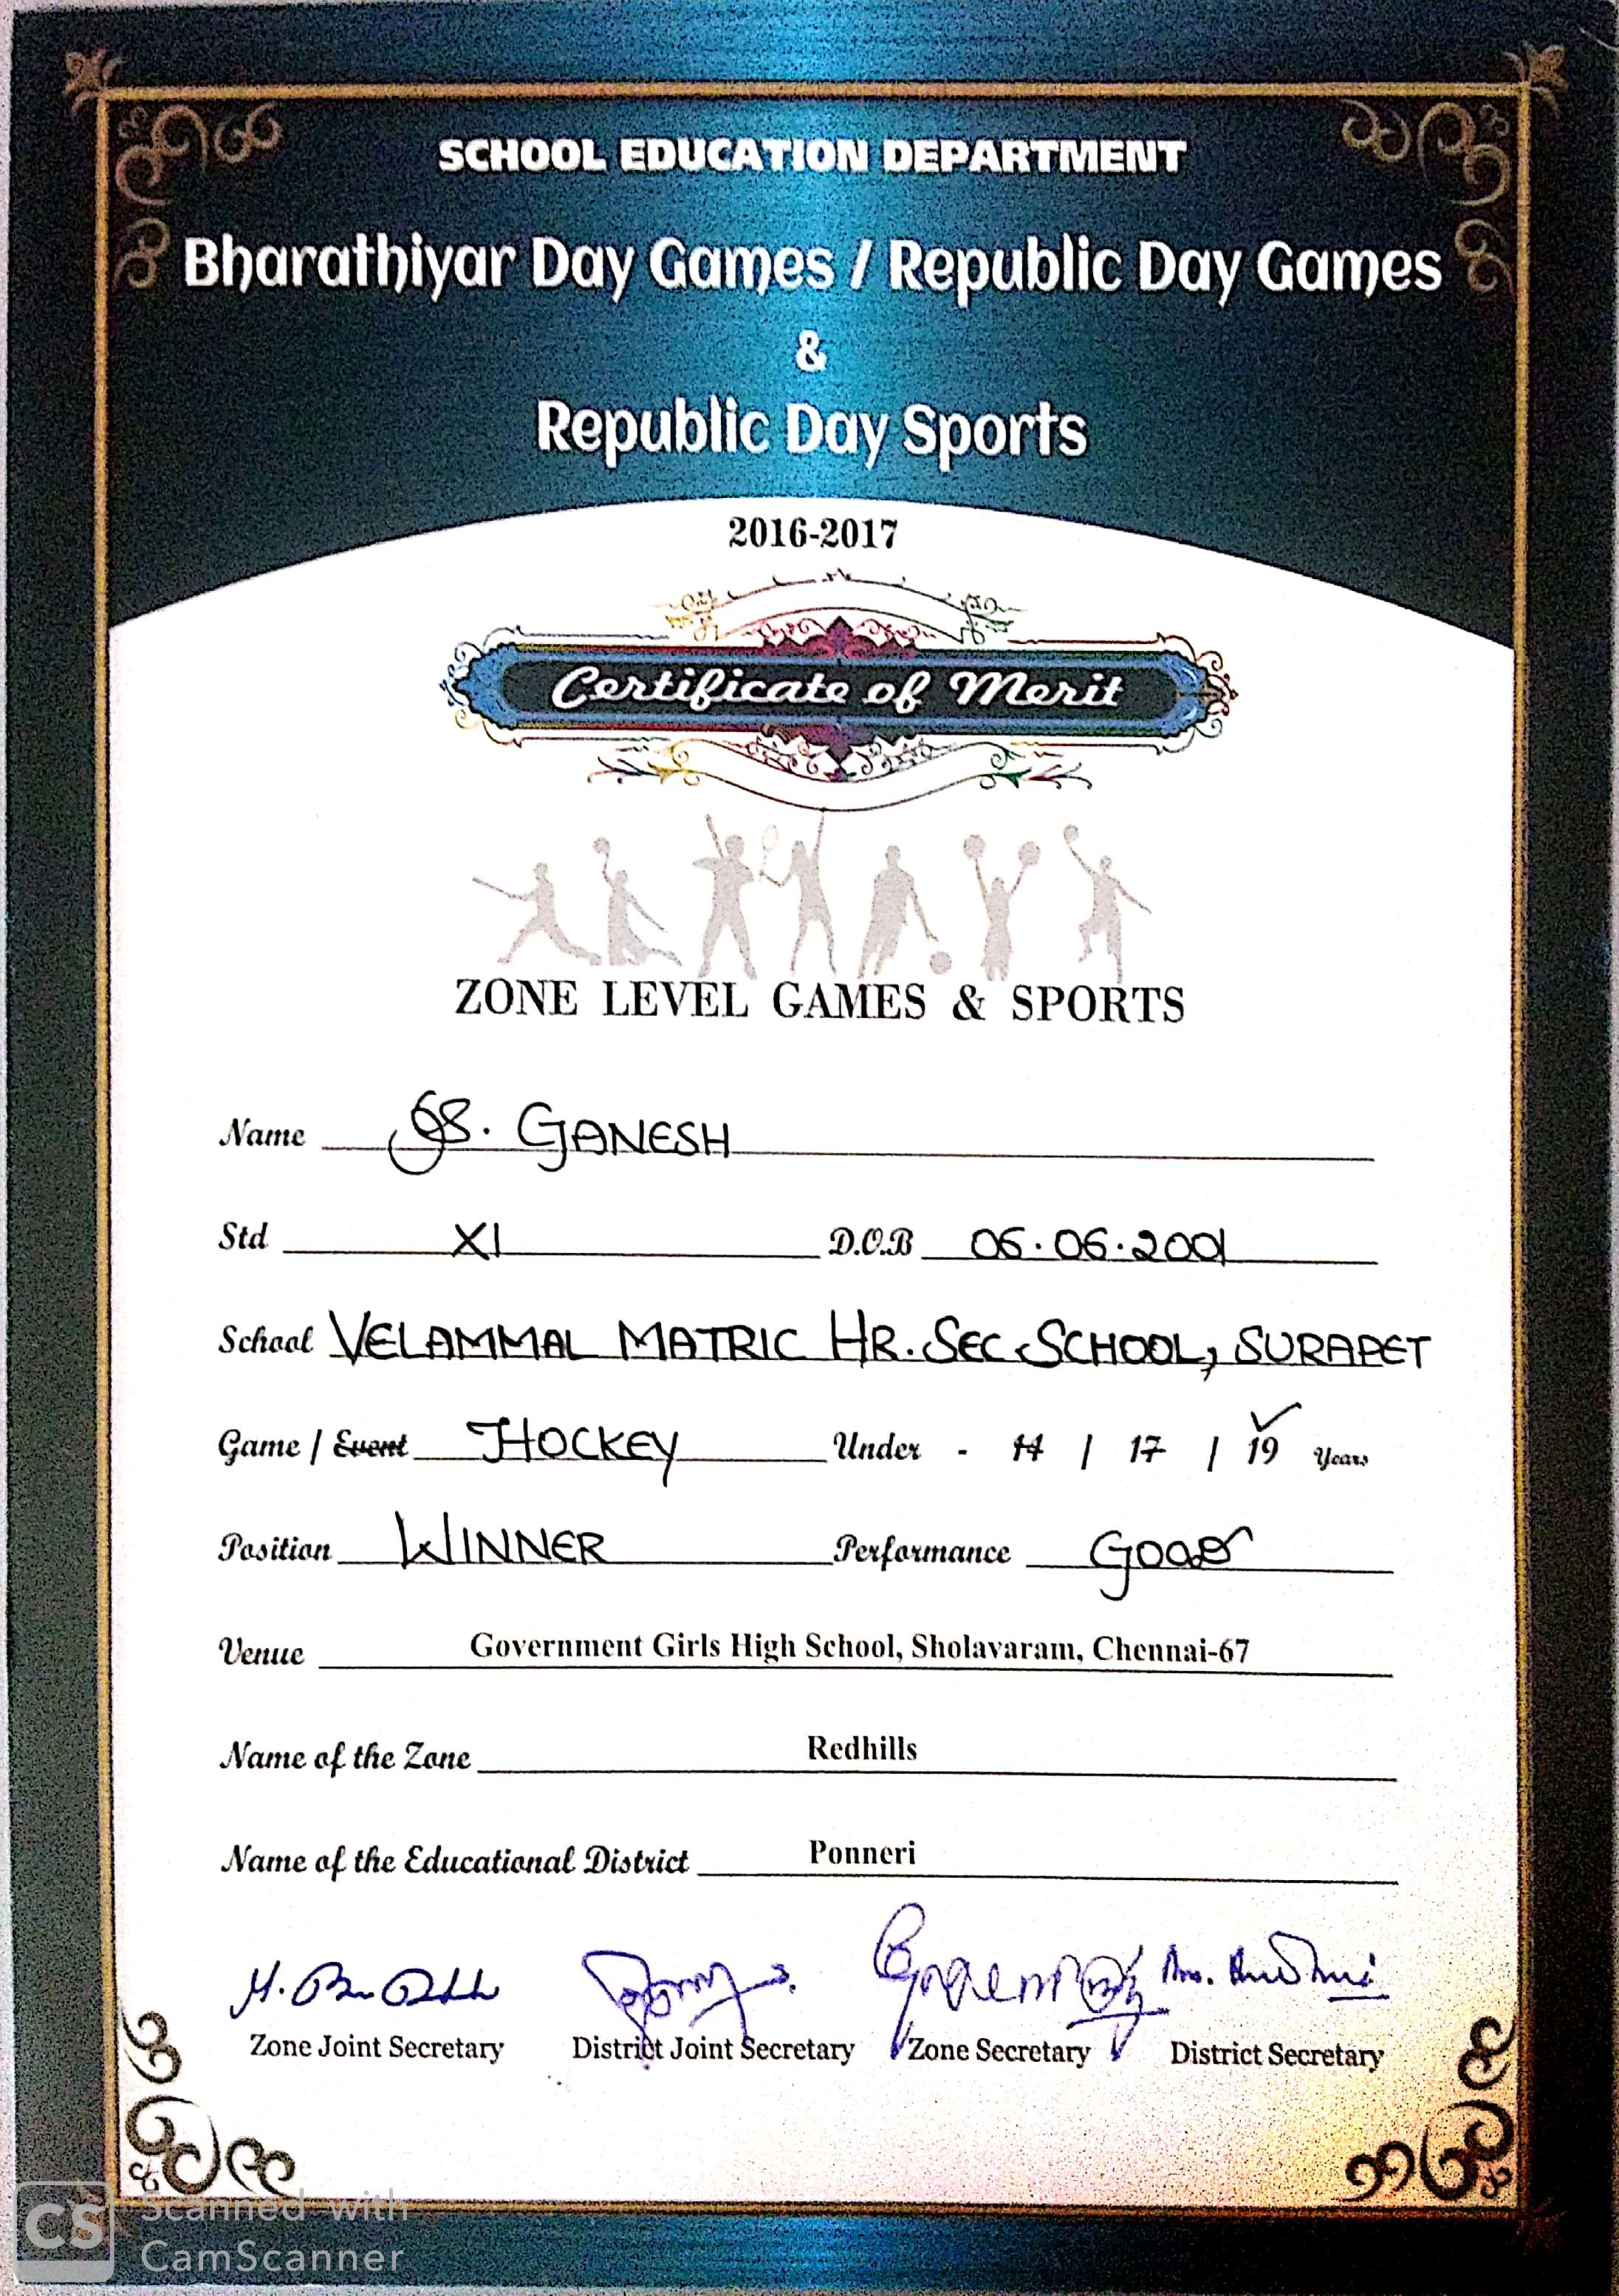 SCHOOL EDUCATION DEPARTMENT
Bharathiyar Day Games / Republic Day Games
&
Republic Day Sports
2016-2017
Certificate of Merit
ZONE LEVEL GAMES & SPORTS
Name S. GANESH
Std XI D.O.B 06.06.2001
School VELAMMAL MATRIC HR. SEC SCHOOL, SURAPET
Game / Event HOCKEY Under - 14 / 17 / 19 Years
Position WINNER Performance GOOD
Venue Government Girls High School, Sholavaram, Chennai-67
Name of the Zone Redhills
Name of the Educational District Ponneri
Zone Joint Secretary District Joint Secretary Zone Secretary District Secretary
CS Scanned with
CamScanner